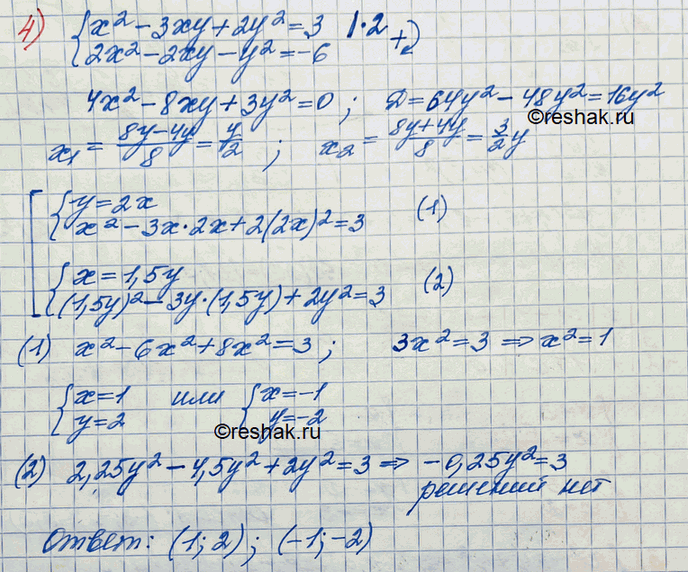 4) { x² - 3xy + 2y² = 3 | · 2
{ 2x² - 2xy - y² = -6 +)
4x² - 8xy + 3y² = 0 ; D = 64y² - 48y² = 16y²
©reshak.ru
x₁ = (8y-4y)/8 = y/2 ; x₂ = (8y+4y)/8 = 3/2 y
[ { y = 2x
{ x² - 3x·2x + 2(2x)² = 3 (1)
{ x = 1,5y
{ (1,5y)² - 3y·(1,5y) + 2y² = 3 (2)
(1) x² - 6x² + 8x² = 3 ; 3x² = 3 ⇒ x² = 1
{ x = 1 или { x = -1
{ y = 2 { y = -2
©reshak.ru
(2) 2,25y² - 4,5y² + 2y² = 3 ⇒ -0,25y² = 3
решений нет
Ответ: (1; 2) ; (-1; -2)